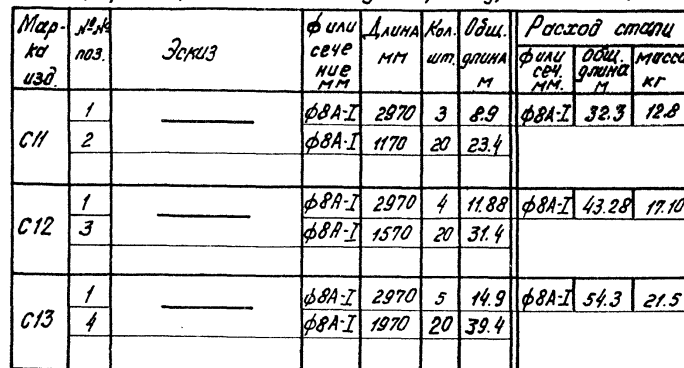 Марка изд. №№ поз. Эскиз ф или сечение мм Длина мм Кол. шт. Общ. длина м Расход стали
ф или сеч. мм. Общ. длина м масса кг
С11 1 ф8А-I 2970 3 8.9 ф8А-I 32.3 12.8
2 ф8А-I 1170 20 23.4
С12 1 ф8А-I 2970 4 11.88 ф8А-I 43.28 17.10
3 ф8А-I 1570 20 31.4
С13 1 ф8А-I 2970 5 14.9 ф8А-I 54.3 21.5
4 ф8А-I 1970 20 39.4